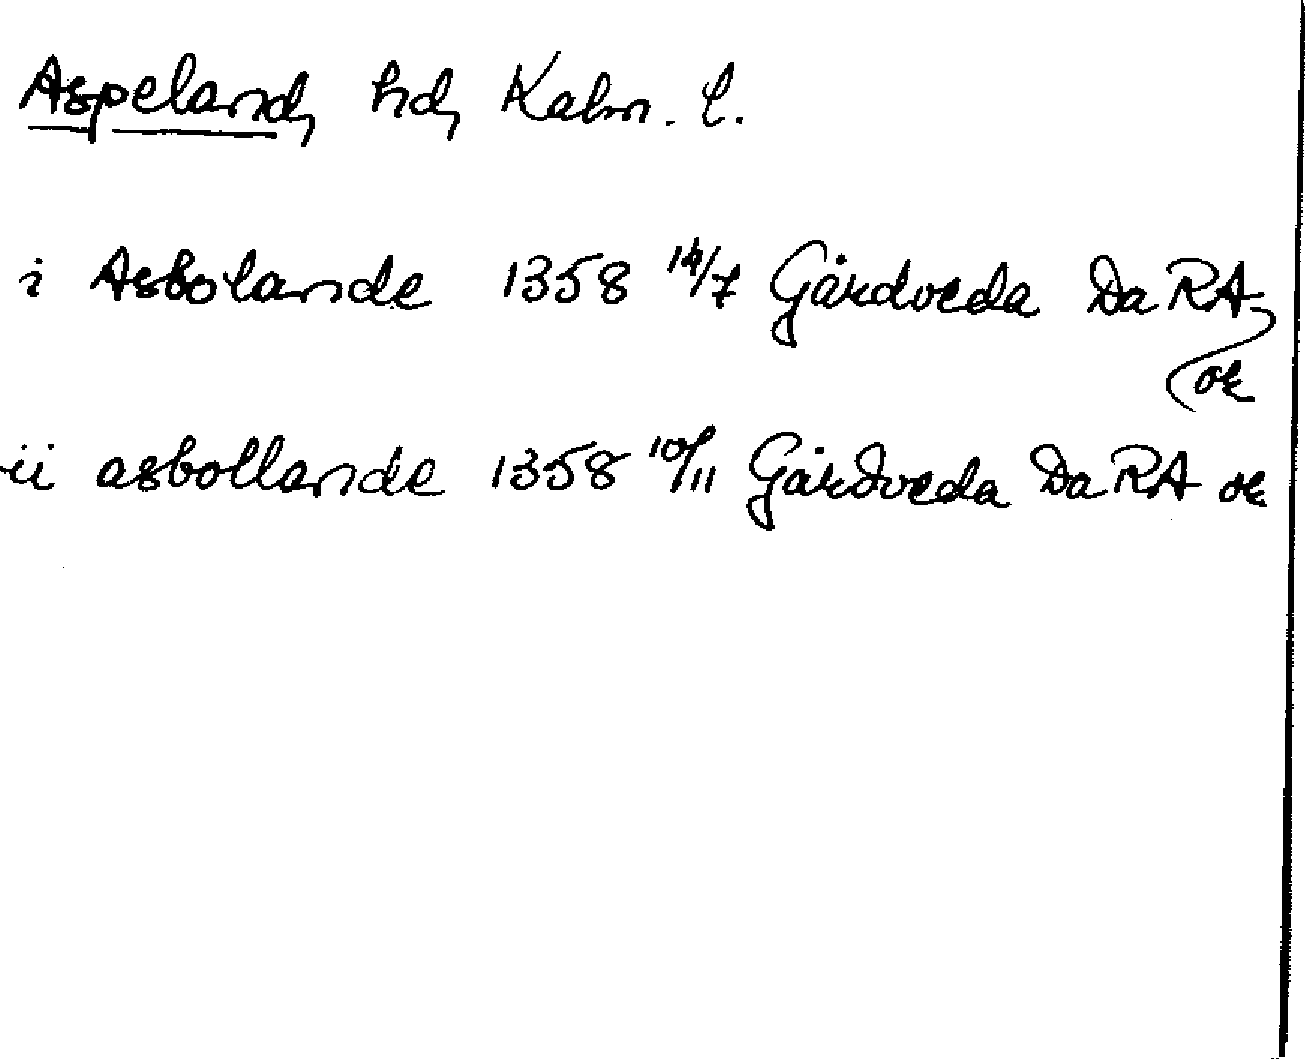 Aspeland, hd, Kalm. l.
i Asbolande 1358 14/7 Gårdveda Da RA
ok
ii asbollande 1358 10/11 Gårdveda Da RA ok